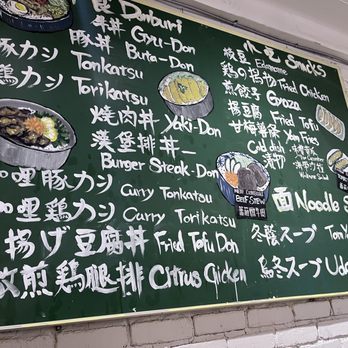 Donburi
丼 Gyu-Don
豚丼 Buta-Don
豚カツ Tonkatsu
鶏カツ Torikatsu
燒肉丼 Yaki-Don
漢堡排丼
Burger Steak-Don
咖哩豚カツ Curry Tonkatsu
咖哩鶏カツ Curry Torikatsu
揚げ豆腐丼 Fried Tofu Don
煎鶏腿排 Citrus Gicken
小吃 Snacks
枝豆 Edamame
鶏の揚物 Fried Chicken
煎餃子 Gyoza
揚豆腐 Fried Tofu
甘梅薯條 Yam Fries
Cold dish
BEEF STEW
面 Noodle S
冬蔭スープ Tom
烏冬スープ Udo